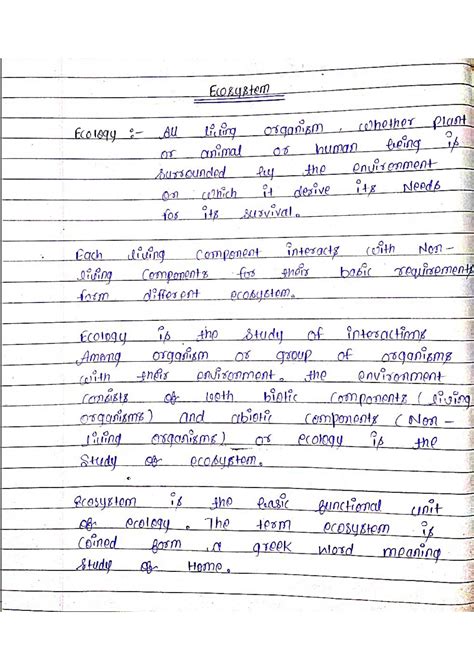 Ecosystem
Ecology :- All living organism, whether plant
or animal or human being is
surrounded by the environment
on which it derive its Needs
for its survival.
Each living component interacts with Non-
living components for their basic requirements
form different ecosystem.
Ecology is the study of interactions
Among organism or group of organisms
with their environment. the environment
consists of both biotic components (living
organisms) and abiotic components (Non-
living organisms) or ecology is the
Study of ecosystem.
ecosystem is the basic functional unit
of ecology. The term ecosystem is
coined form a greek word meaning
study of Home.